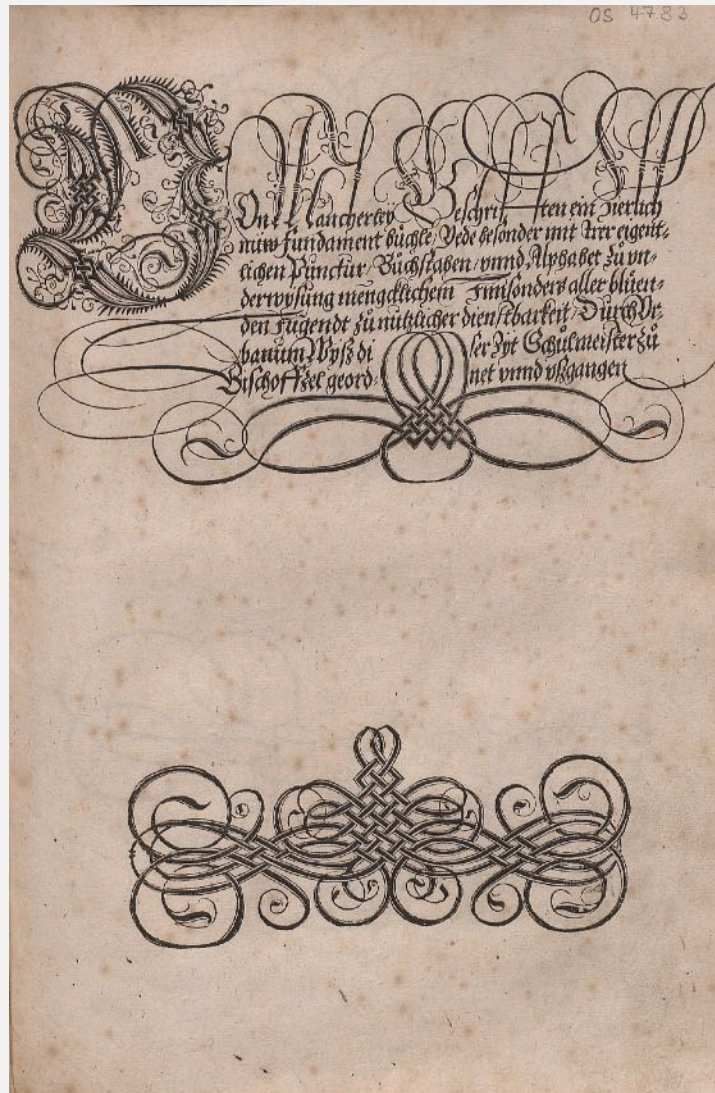 OS 4783
VOn Mancherleÿ Geschrifften ein zierlich
nüw fundament büchle / Yede besonder mit Irer eigent⸗
lichen Punctur / Büchstaben / vnnd Alphabet zů vn⸗
derwysung mengcklichem Innsonders aller blüen⸗
den Jugendt zů nutzlicher dienstbarkeit / Durch Vr⸗
banum Wysz di ser Zyt Schůlmeister zů
Bischoffzel geord⸗ net vnnd vszgangen